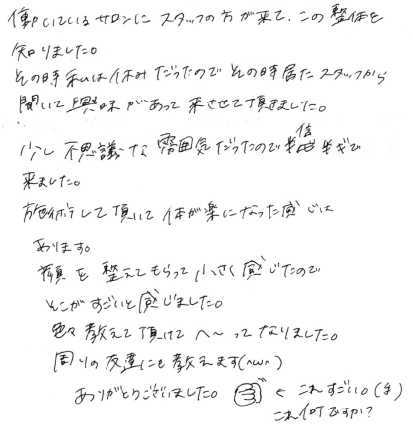 働いているサロンにスタッフの方が来て、この整体を
知りました。
その時私は休みだったのでその時居たスタッフから
聞いて興味があって来させて頂きました。
少し不思議な雰囲気だったので半信半ぎで
来ました。
施術して頂いて体が楽になった感じは
あります。
頭を整えてもらって小さく感じたので
そこがすごいと感じました。
色々教えて頂けてへ〜ってなりました。
周りの友達にも教えます(^ω^)
ありがとうございました。 ← これすごい。(ま)
これ何ですか?